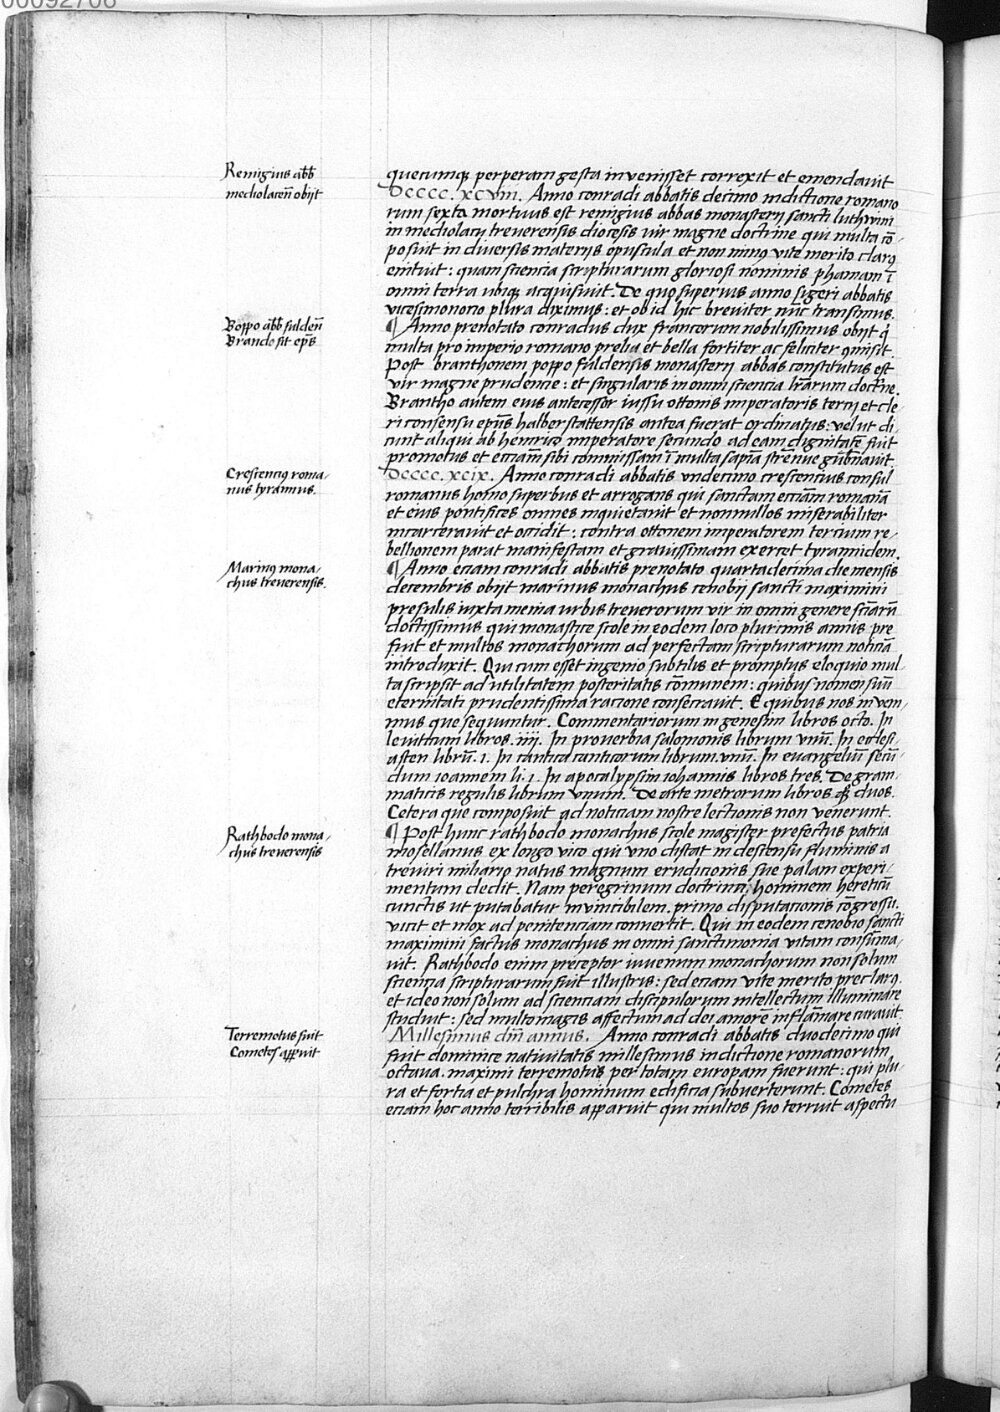 00092706
Remigius abb̄
mediolaceñ obijt
quecumq; perperam gesta invenisset correxit et emendavit
Dcccc.xcviii. Anno conradi abbatis decimo indictione romano
rum sexta mortuus est remigius abbas monasterij sancti luthwini
in mediolacu treverensis diocesis vir magne doctrine qui multa cō-
posuit in diversis materijs opuscula et non minus vite merito clarꝰ
enituit: quam sciencia scripturarum gloriosi nominis phamam ī
omni terra ubiq; acquisivit. De quo superius anno sigeri abbatis
vicesimonono plura diximus: et ob id hic breviter nūc transimus.
Boppo abb̄ fuldeñ
Brando fit ep̄s
¶ Anno prenotato conradus dux francorum nobilissimus obijt q̇
multa pro imperio romano prelia et bella fortiter ac feliciter ꝯmisit.
Post branthonem poppo fuldensis monasterij abbas constitutus est
vir magne prudencie: et singularis in omni sciencia lr̄arum doctne.
Brantho autem eius antecessor iussu ottonis imperatoris tercij et cle-
ri consensu ep̄us halberstattensis antea fuerat ordinatus: velut di-
cunt aliqui ab henrico imperatore secundo ad eam dignitatē fuit
promotus et ecciām sibi commissam ī multa sapīa strēnue gub̄navit
Crescenciꝰ roma-
nus tyrannus.
Dcccc.xcix. Anno conradi abbatis undecimo crescencius consul
romanus homo superbus et arrogans qui sanctam ecciām romanā
et eius pontifices omnes inquietavit et nonnullos miserabiliter
incarceravit et occidit: contra ottonem imperatorem tercium re-
bellionem parat manifestam et gravissimam exercet tyrannidem.
Marinꝰ mona-
chus treverensis.
¶ Anno eciam conradi abbatis prenotato quartadecima die mensis
decembris obijt marinus monachus cenobij sancti maximini
presulis iuxta menia urbis treverorum vir in omni genere sciārū
doctissimus qui monastice scole in eodem loco plurimis annis pre
fuit et multos monachorum ad perfectam scripturarum noticiā
introduxit. Qui cum esset ingenio subtilis et promptus eloquio mul
ta scripsit ad utilitatem posteritatis cōmunem: quibus nomen suū
eternitati prudentissima racione consecravit. E quibus nos inveni-
mus que sequuntur. Commentariorum in genesim libros octo. In
leviticum libros .iiii. In proverbia salomonis librum unū. In ecclesi-
asten librū .i. In cantica canticorum librum.unū. In evangeliū secū
dum ioannem li.i. In apocalypsim iohannis libros tres. De gram-
maticis regulis librum unum. De arte metrorum libros qꝫ duos.
Cetera que composuit ad noticiam nostre lectionis non venerunt.
Rathbodo mona-
chus treverensis
¶ Post hunc rathbodo monachus scole magister prefectus patria
mosellanus ex longo vico qui uno distat in descensu fluminis a
treviri miliario natus magnum erudicionis sue palam experi-
mentum dedit. Nam peregrinum doctrina hominem hereticū
cunctis ut putabatur invincibilem. primo disputacionis cōgressu.
vicit et mox ad penitenciam convertit. Qui in eodem cenobio sancti
maximini factus monachus in omni sanctimonia vitam consūma-
vit. Rathbodo enim preceptor iuvenum monachorum non solum
sciencia scripturarum fuit illustris: sed eciam vite merito preclarꝰ.
et ideo non solum ad scienciam discipulorum intellectum illuminare
studuit: sed multomagis affectum ad dei amorē inflāmare curavit.
Terremotus fuit
Cometes apparuit
Millesimus dn̄i annus. Anno conradi abbatis duodecimo qui
fuit dominice nativitatis millesimus indictione romanorum
octava. maximi terremotus per totam europam fuerunt: qui plu-
ra et fortia et pulchra hominum edificia subverterunt. Cometes
eciam hoc anno terribilis apparuit qui multos suo terruit aspectu